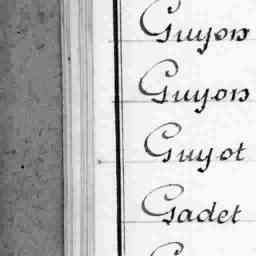 Guyon
Guyon
Guyot
Gadet